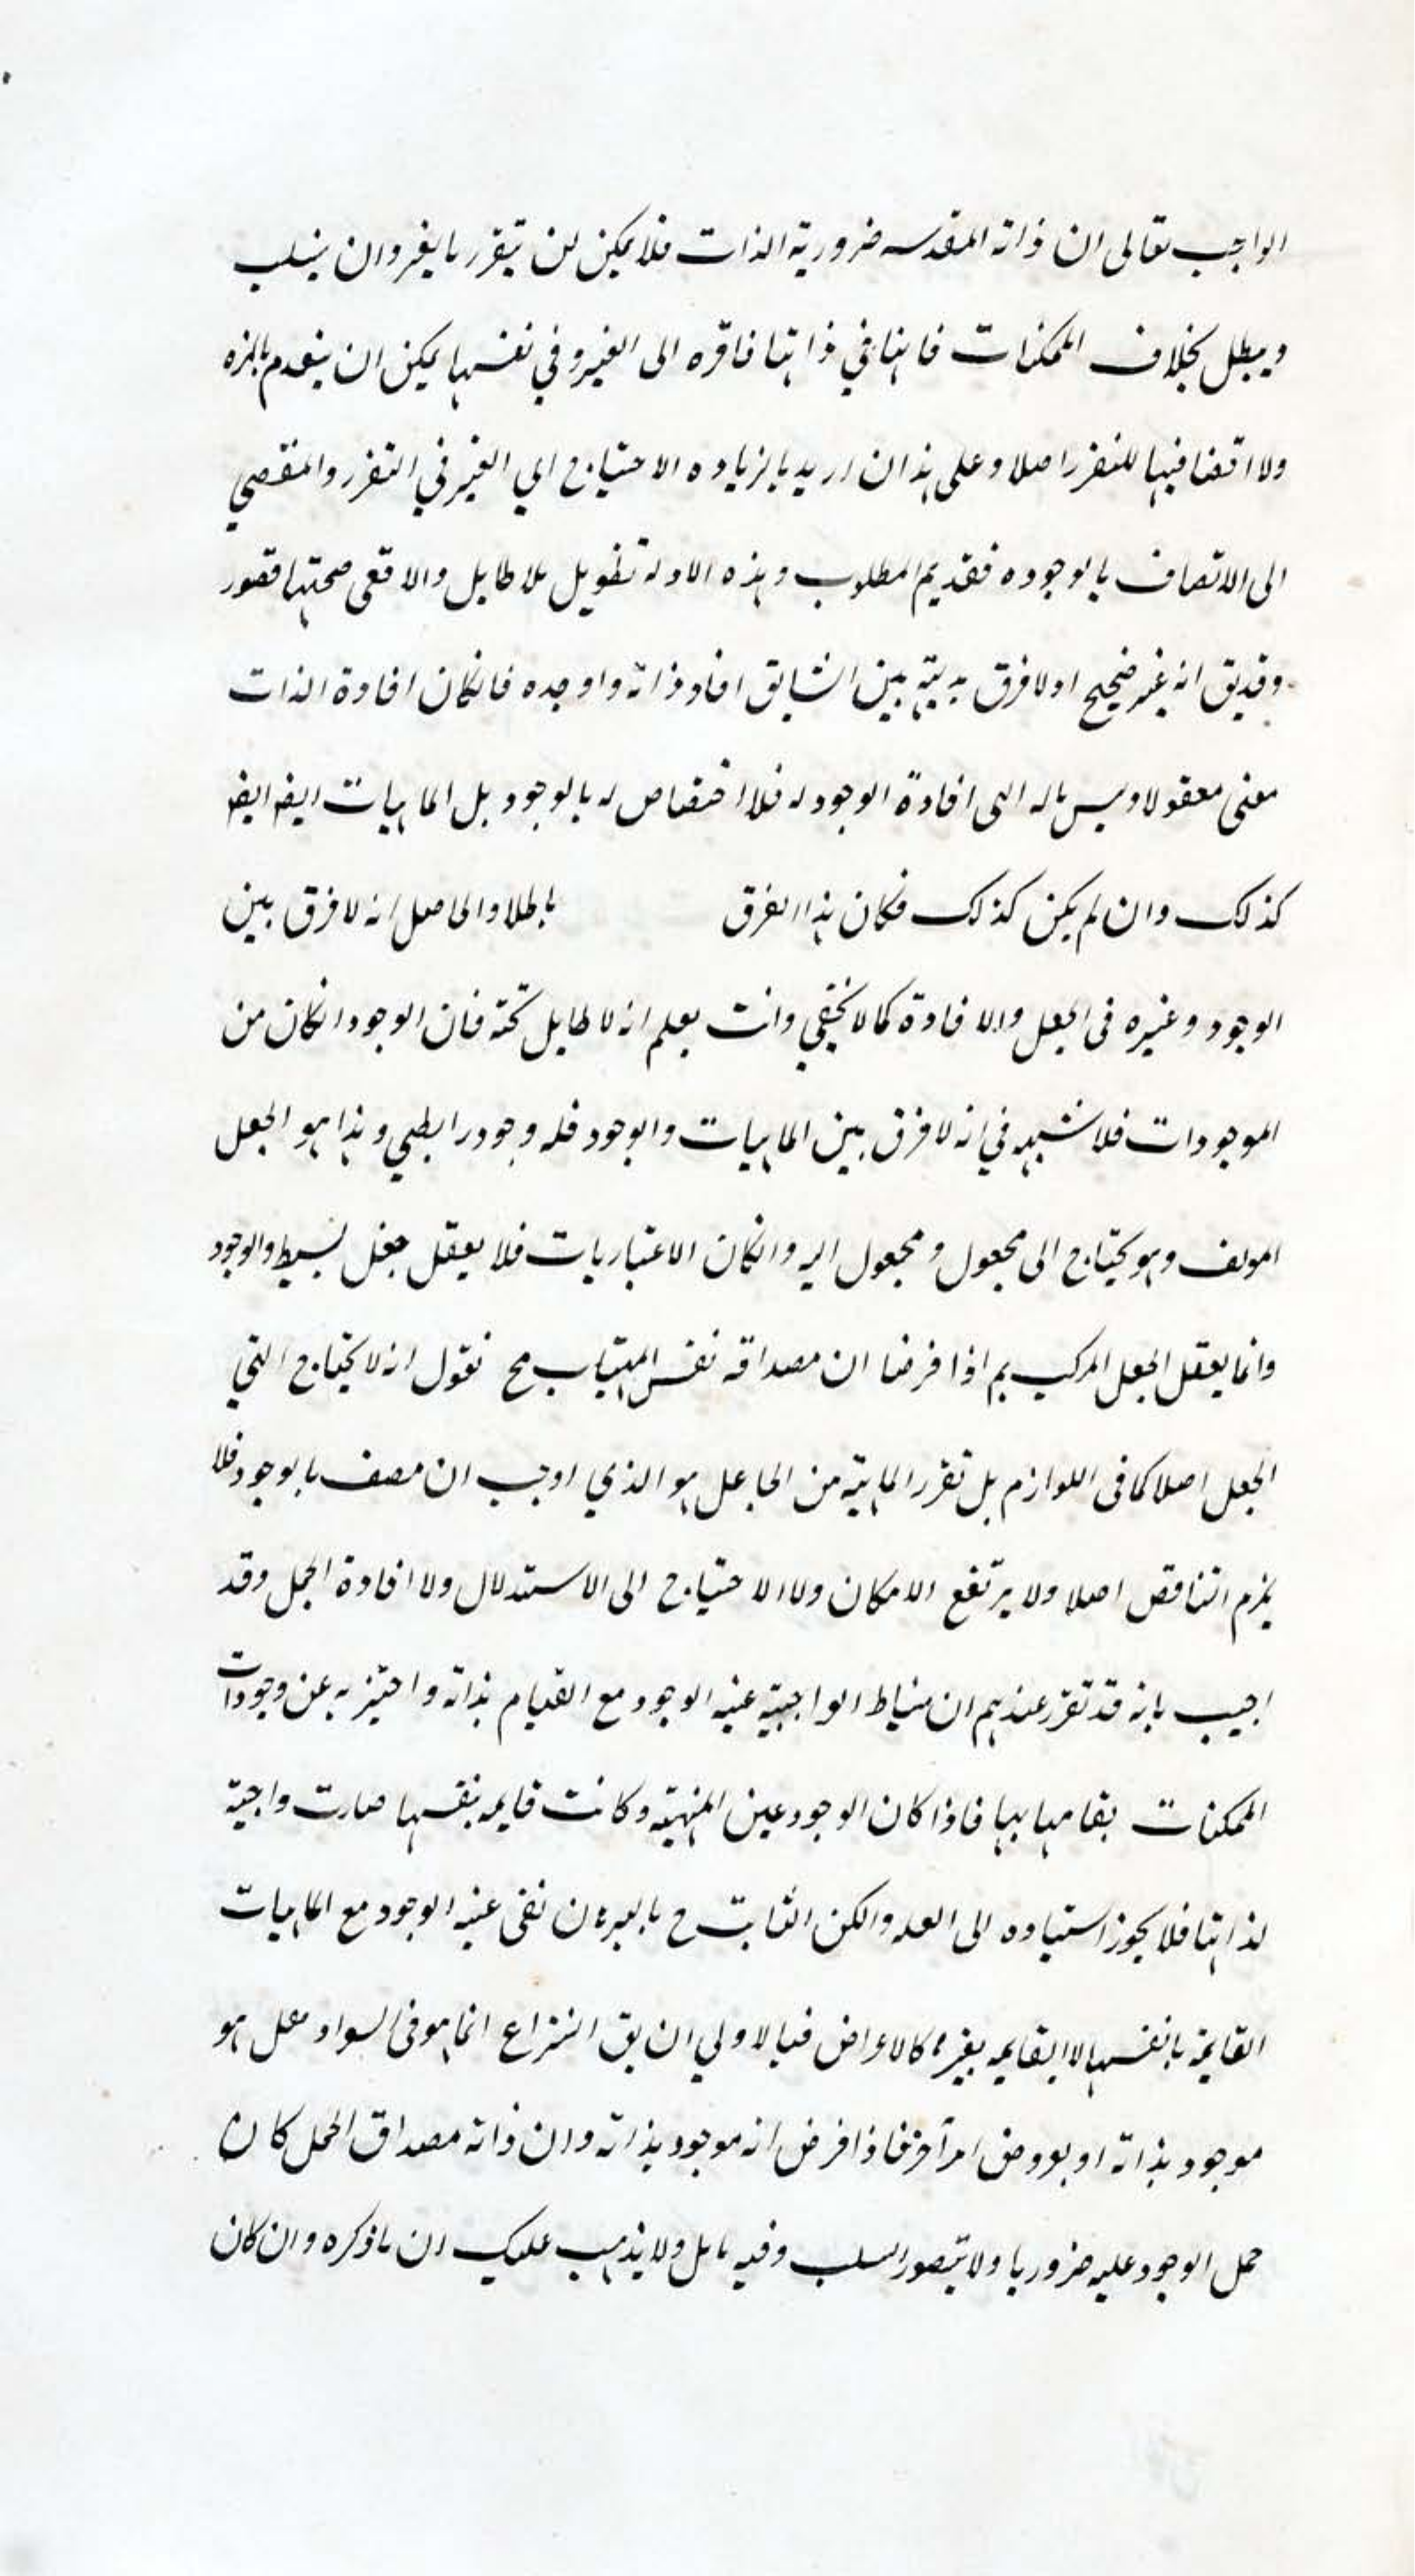 الواجب تعالى ان ذاته المقدسه ضرورية الذات فلا يمكن ان يتقرر بالغير وان يسلب
ويبطل بخلاف الممكنات فانها في ذاتها فاقره الى الغير وفي نفسها يمكن ان ينعدم بالمره
ولا اقتضا فيها للتقرر اصلا وعلى هذا ان اريد بالزياده الاحتياج الي الغير في التقرر والمقصي
الى الاتصاف بالوجوده فقديم المطلوب وهذه الادله تطويل بلا طايل والا فعي صحتها قصور
وقد يق انه غير صحيح اولا فرق بديهة بين الشايق افاد ذاته واوجده فانكان افادة الذات
معنى معقولا وليس ماله الى افادة الوجود له فلا اختصاص له بالوجود بل الماهيات ايضا ايضا
كذلك وان لم يكن كذلك فكان هذا الفرق باطلا والحاصل انه لا فرق بين
الوجود وغيره فى الجعل والافادة كما لا يخفي وانت بعلم انه لا طايل تحته فان الوجود انكان من
الموجودات فلا شبهه في انه لا فرق بين الماهيات والوجود فله وجود رابطي وهذا هو الجعل
المولف وهو يحتاج الى مجعول ومجعول اليه وانكان الاعتباريات فلا يعقل جعل بسيط والوجود
وانما يعقل الجعل المركب ثم اذا فرضنا ان مصداقه نفس المهيات مح نقول انه لا يحتاج التي
الجعل اصلا كما فى اللوازم بل تقرر الماهية من الجاعل هو الذي اوجب ان مصف بالوجود فلا
يلزم التناقض اصلا ولا يرتفع الامكان ولا الاحتياج الى الاستدلال ولا افادة الحمل وقد
اجيب بانه قد تقرر عندهم ان مناط الواجبية عنيه الوجود مع القيام بذاته واحتيز به عن وجودات
الممكنات بقامها بها فاذا كان الوجود عين المهية وكانت قايمه بنفسها صارت واجبة
لذاتها فلا يجوز استياده الى العله والكن الثابت ح بالبرهان نفى عنيه الوجود مع الماهيات
القايمة بانفسها لا القايمه بغيرها كالاعراض فيالاولي ان يق النزاع انما هو فى السواد معل هو
موجود بذاته او بعروض امر آخر فاذا فرض انه موجود بذاته وان ذاته مصداق الحمل كان
حمل الوجود عليه ضروريا ولا يتصور السلب وفيه تامل ولا يذهب عليك ان ماذكره وان كان